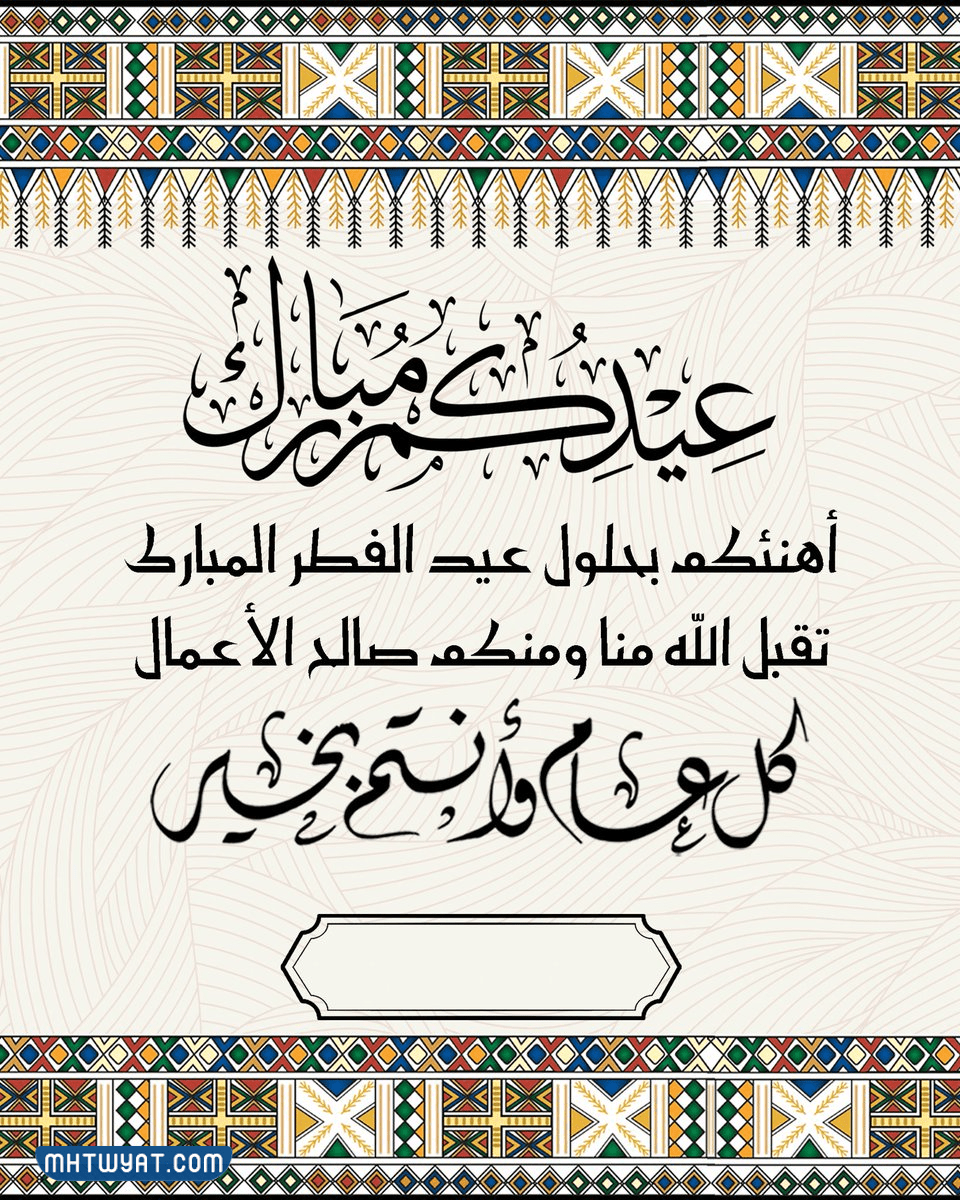 عِيدِكُم مُبَارك
أهنئكم بحلول عيد الفطر المبارك
تقبل الله منا ومنكم صالح الأعمال
كل عام وأنتم بخير
MHTWYAT.COM